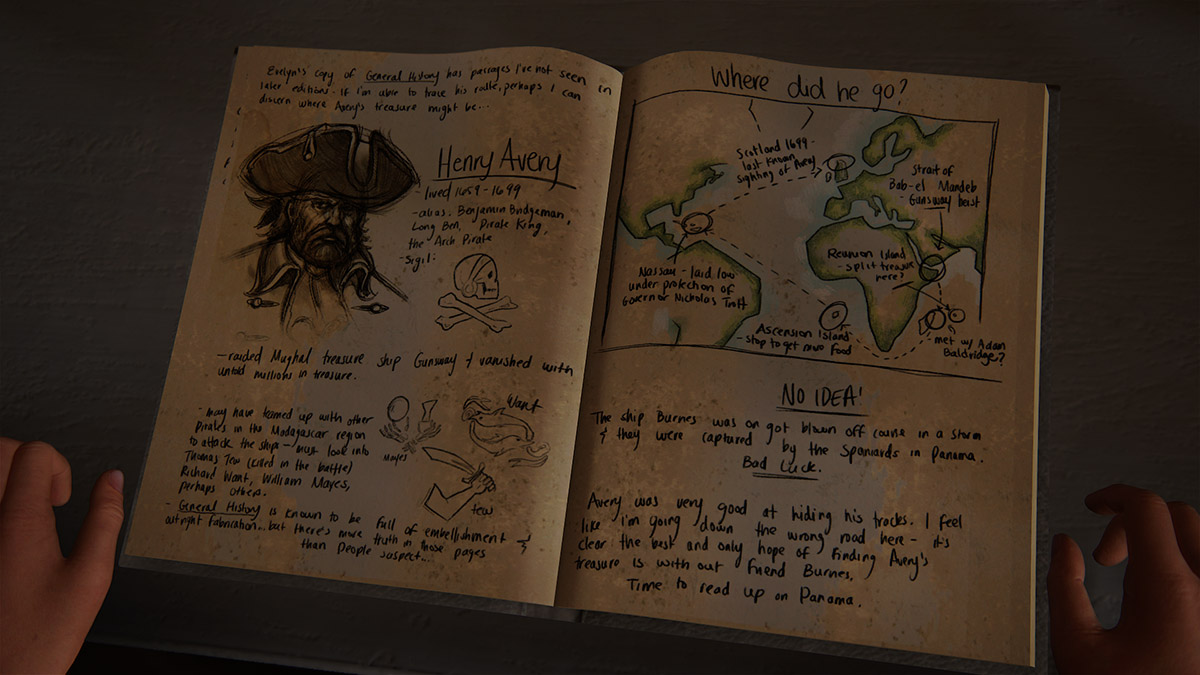 Evelyn's copy of General History has passages I've not seen in
later editions. If I'm able to trace his route, perhaps I can
discern where Avery's treasure might be...
Henry Avery
- lived 1659 - 1699
- alias: Benjamin Bridgeman,
Long Ben, Pirate King,
the Arch Pirate
- Sigil:
- raided Mughal treasure ship Gunsway & vanished with
untold millions in treasure.
- may have teamed up with other
Pirates in the Madagascar region
to attack the ships - must look into
Thomas Tew (killed in the battle)
Richard Want, William Mayes,
perhaps others.
Mayes
Want
Tew
- General History is known to be full of embellishment &
outright fabrication... but there's more truth in those pages
than people suspect...
Where did he go?
Scotland 1699 -
last known
sighting of Avery
Strait of
Bab-el Mandeb
- Gunsway heist
Reunion Island
- split treasure
here?
Nassau - laid low
under protection of
Governor Nicholas Trott
Ascension Island
- stop to get more food
met w/ Adam
Baldridge?
NO IDEA!
The ship Burnes was on got blown off course in a storm
& they were captured by the Spaniards in Panama.
Bad Luck.
Avery was very good at hiding his tracks. I feel
like I'm going down the wrong road here - it's
clear the best and only hope of finding Avery's
treasure is with our friend Burnes.
Time to read up on Panama.